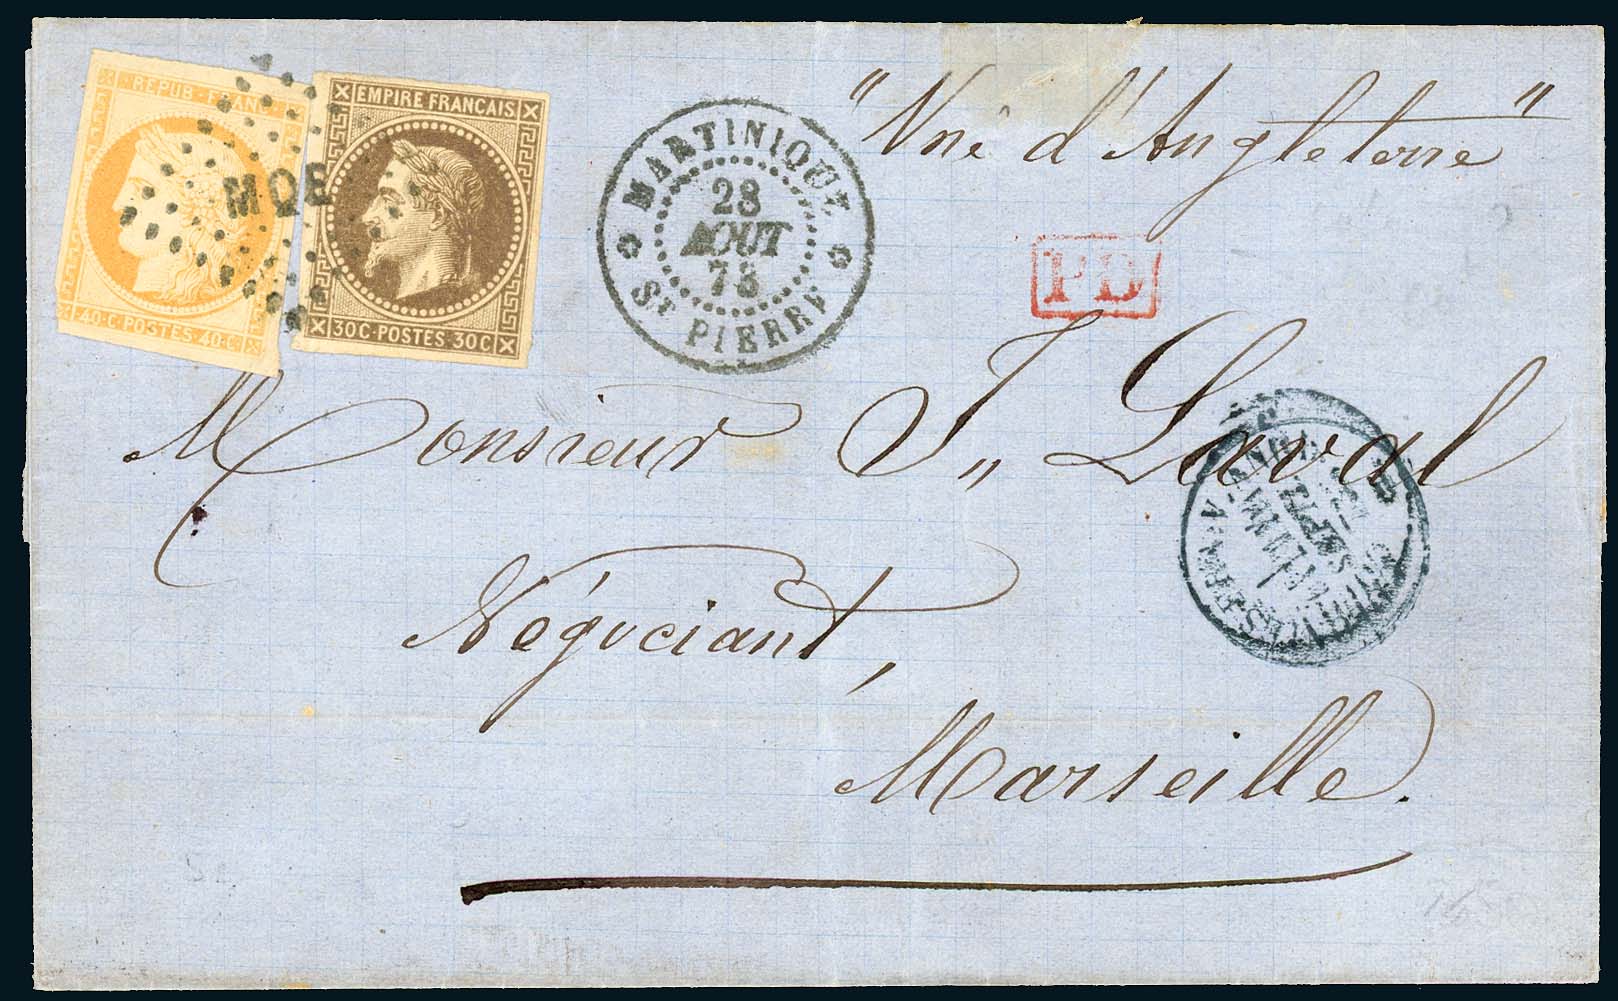 REPUB · FRANC
40 · C · POSTES · 40 · C ·
MQE
EMPIRE FRANCAIS
30 C · POSTES · 30 C
MARTINIQUE
28
AOUT
73
ST PIERRE
"Vie d'Angleterre"
PD
Monsieur J,, Laval
Négociant,
Marseille.
SEPT